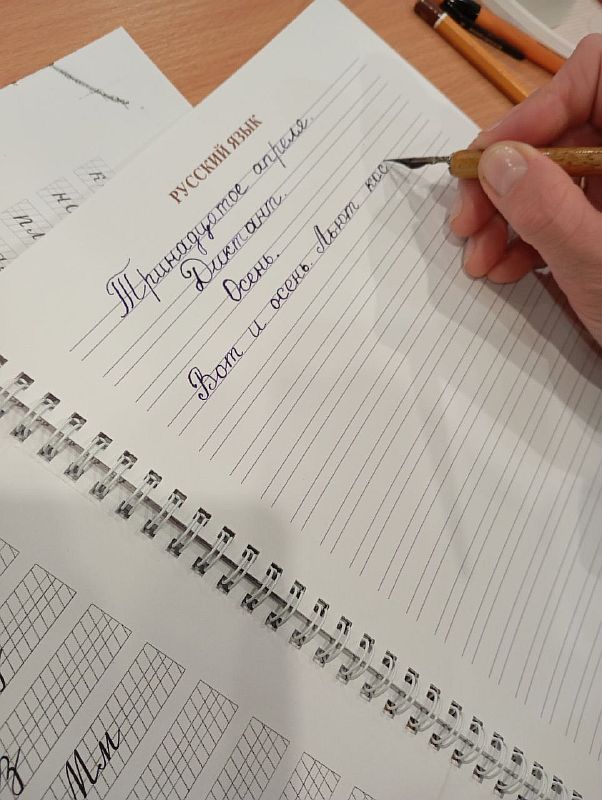 РУССКИЙ ЯЗЫК
Тринадцатое апреля.
Диктант.
Осень.
Вот и осень. Льют кос
пл
но
З
Мм